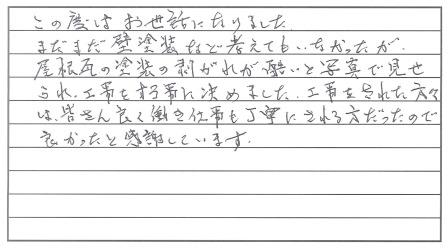 この度はお世話になりました.
まだまだ壁塗装など考えてもいなかったが.
屋根瓦の塗装の剥がれが酷いと写真で見せ
られ.工事を 事に決めました.工事をされた方々
は、皆さん良く働き仕事も丁寧にされる方だったので
良かったと感謝しています.